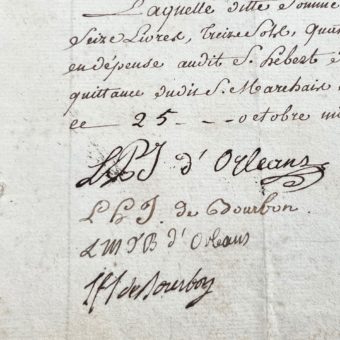 Laquelle ditte Somme
Seize Livres, Treize Sols, Quat
en dépense audit S. hébert
quittance dudit S. Marchais
ce 25 octobre mi
LPJ d'Orleans
L h J. de Bourbon.
LMTB d'Orleans
LHJ de Bourbon